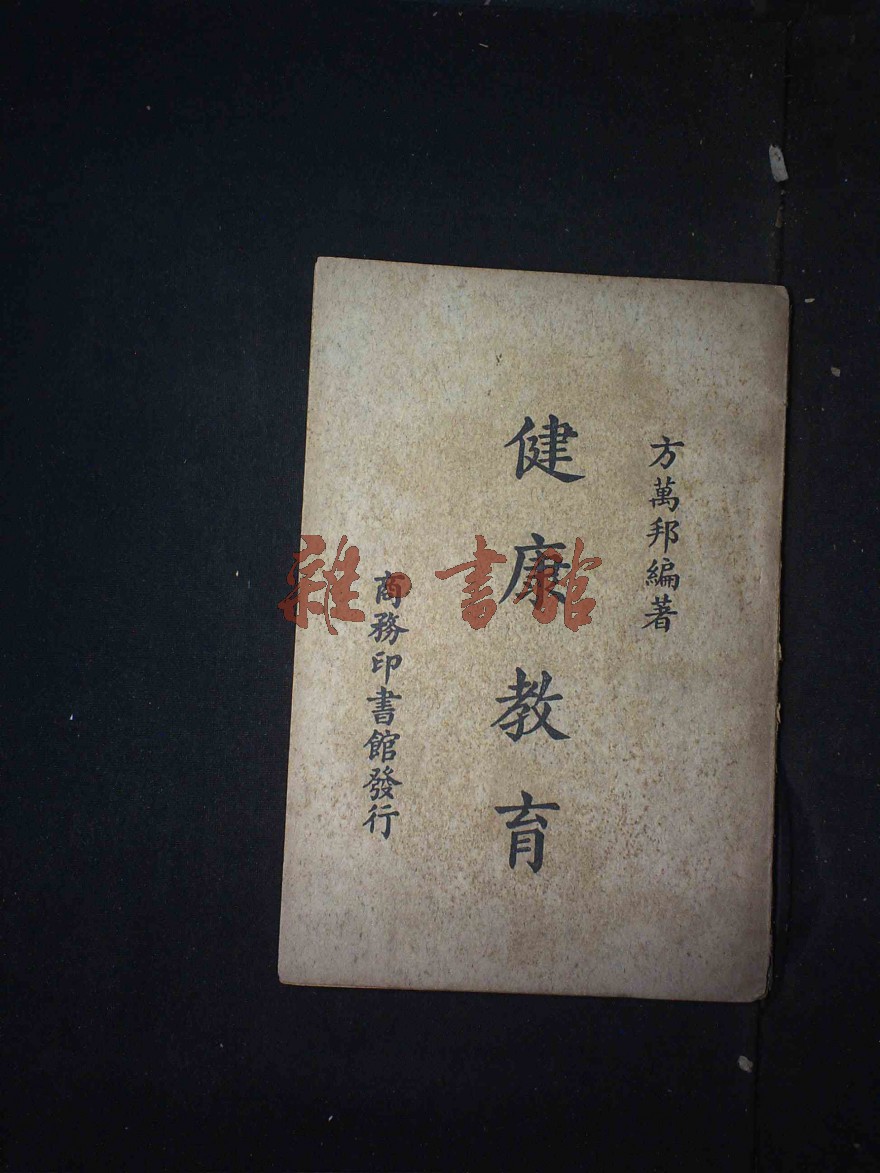 方萬邦編著
健康教育
商務印書館發行
雜·書館